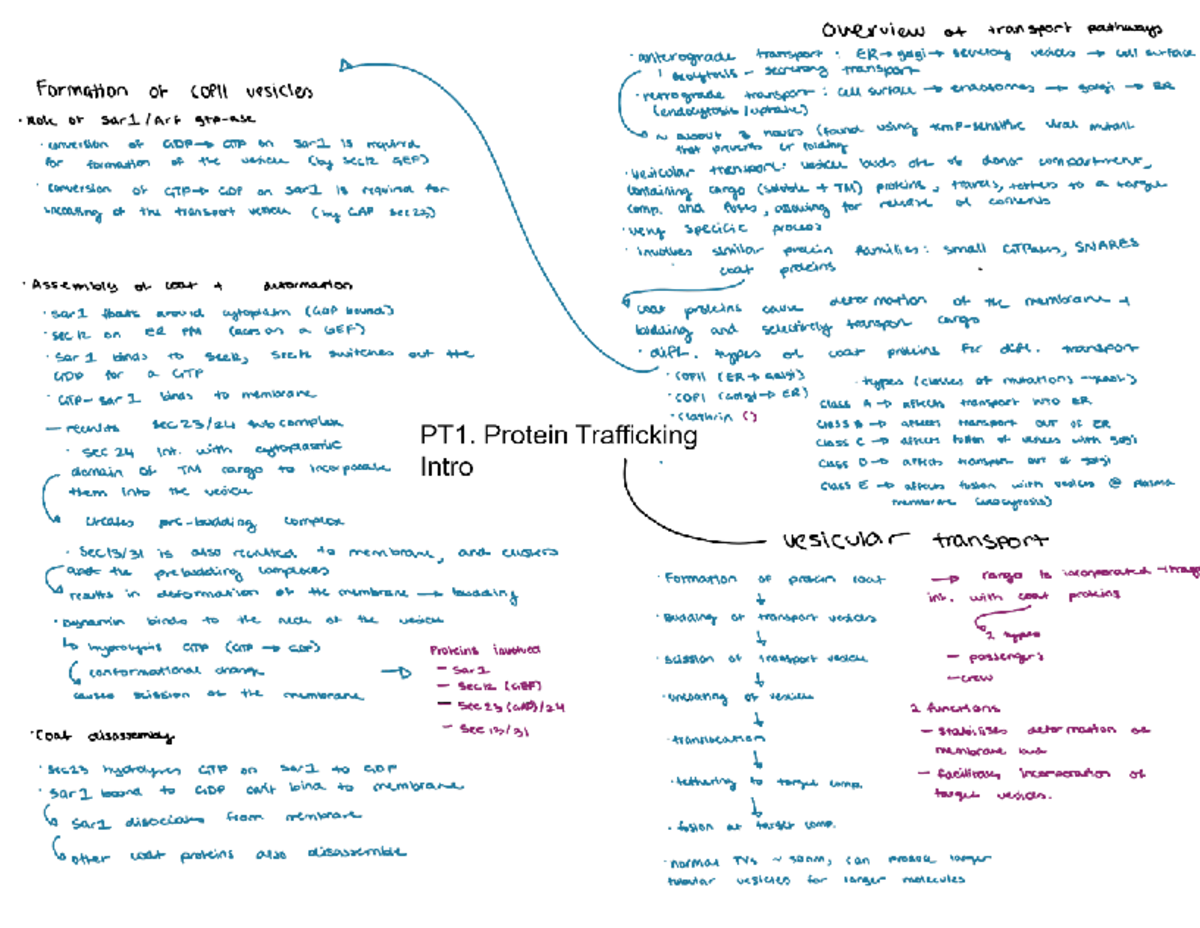 Overview of transport pathways
· anterograde transport : ER → golgi → secretory vesicles → cell surface
exocytosis - secretory transport
· retrograde transport : cell surface → endosomes → golgi → ER
(endocytosis/uptake)
~ about 3 hours (found using temp-sensitive viral mutant
that prevents ER folding
· vesicular transport: vesicle buds off of donor compartment,
containing cargo (soluble + TM) proteins, travels, tethers to a target
comp. and fuses, allowing for release of contents
· very specific process
· involves similar protein families: small GTPases, SNARES
coat proteins
coat proteins cause deformation of the membrane +
budding and selectively transport cargo
· diff. types of coat proteins for diff. transport
· COPII (ER → Golgi)
· COPI (Golgi → ER)
· Clathrin ()
· types (classes of mutations - yeast)
class A → affects transport INTO ER
class B → affects transport OUT OF ER
class C → affects fusion of vesicles with golgi
class D → affects transport out of golgi
class E → affects fusion with vesicles @ plasma
membrane (exocytosis)
Formation of COPII vesicles
· Role of Sar1/Arf gtp-ase
· conversion of GDP → GTP on Sar1 is required
for formation of the vesicle (by sec12 GEF)
· conversion of GTP → GDP on Sar1 is required for
uncoating of the transport vesicle (by GAP sec23)
· Assembly of coat + deformation
· Sar1 floats around cytoplasm (GDP bound)
· sec12 on ER PM (acts as a GEF)
· Sar1 binds to sec12, sec12 switches out the
GDP for a GTP
· GTP-Sar1 binds to membrane
— recruits sec23/24 subcomplex
· sec24 int. with cytoplasmic
domain of TM cargo to incorporate
them into the vesicle
creates pre-budding complex
· sec13/31 is also recruited to membrane, and clusters
the prebudding complexes
results in deformation of the membrane → budding
· Dynamin binds to the neck of the vesicle
↳ hydrolysis GTP (GTP → GDP)
conformational change
causes scission of the membrane
Proteins involved
— Sar1
— Sec12 (GEF)
— Sec23(GAP)/24
— Sec13/31
· Coat disassembly
· sec23 hydrolyses GTP on Sar1 to GDP
· Sar1 bound to GDP can't bind to membrane
Sar1 disociates from membrane
other coat proteins also disassemble
PT1. Protein Trafficking
Intro
vesicular transport
· Formation of protein coat
↓
· Budding of transport vesicles
↓
· scission of transport vesicle
↓
· uncoating of vesicle
↓
· translocation
↓
· tethering to target comp.
↓
· fusion at target comp.
· normal TVs ~ 50nm, can produce larger
tubular vesicles for larger molecules
→ cargo is incorporated
int. with coat proteins
2 types
— passengers
— crew
2 functions
— stabilises deformation of
membrane bud
— facilitates incorporation of
target vesicles.